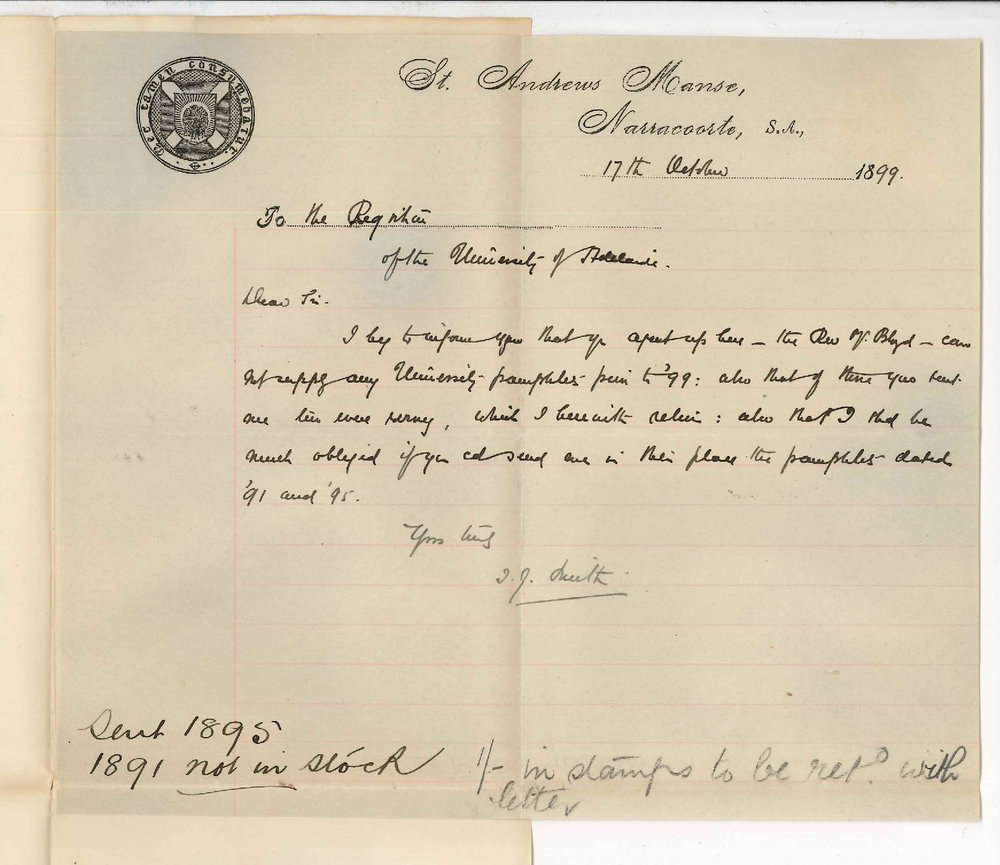 Nec tamen consumebatur.
St. Andrews Manse,
Narracoorte, S.A.,
17th October 1899.
To the Registrar
of the University of Adelaide.
Dear Sir.
I beg to inform you that yr agent up here – the Rev. Blyd – can
not supply any University pamphlets prior to '99: also that of those you sent
me two were wrong, which I herewith return: also that I shd be
much obliged if you cd send me in their place the pamphlets dated
'91 and '95.
Yrs truly
J. Smith
Sent 1895
1891 not in stock
1/- in stamps to be retd with
letter